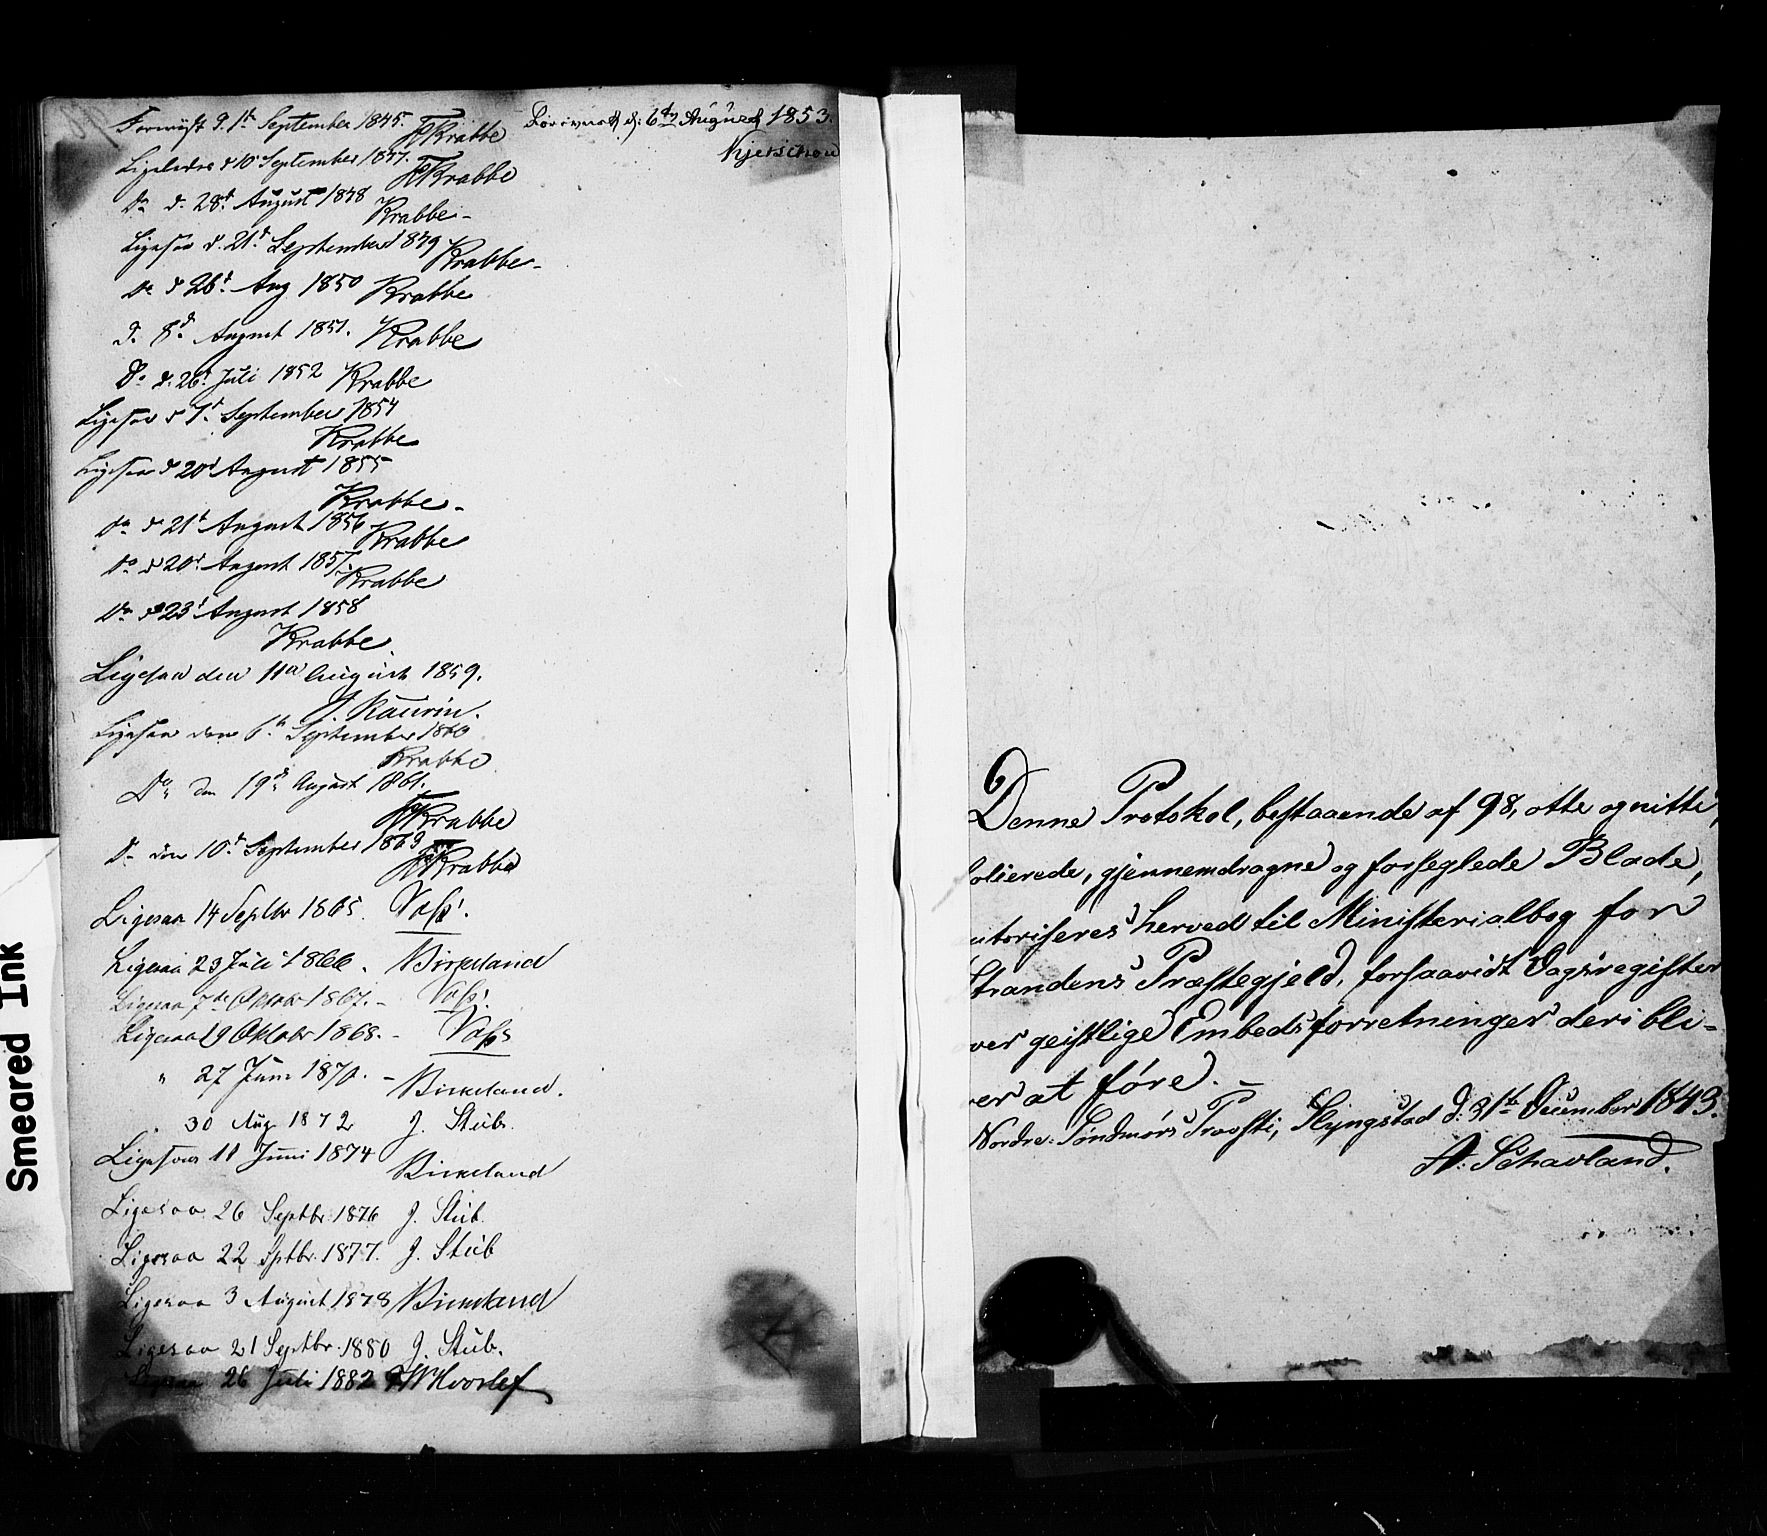 Foreviist d. 1st September 1845. Krabbe
Ligeledes d 10 September 1847. Krabbe
Do d. 28d August 1848 Krabbe
Ligesaa d. 21d September 1849 Krabbe
Do d 26d Aug 1850 Krabbe
d. 8d August 1851. Krabbe
Do d. 26d Juli 1852 Krabbe
Ligesaa d 7d September 1854
Krabbe
Ligesaa d 20d August 1855
Krabbe
do d 21d August 1856 Krabbe
do d 20d August 1857. Krabbe
do d 23d August 1858
Krabbe
Ligesaa den 11te August 1859.
J. Kaurin.
Ligesaa den 6te September 1860
Krabbe
Do den 19de August 1861.
Krabbe
Do den 10d September 1863
Krabbe
Ligesaa 14 Septbr 1865. Voss.
Ligesaa 23 Juli 1866. Birkeland
Ligesaa 7de Oktober 1867. Voss.
Ligesaa 19 Oktobr 1868. - Voss
" 27 Juni 1870. - Birkeland.
" 30 Aug 1872 J. Stub.
Ligesaa 11 Juni 1874 Birkeland
Ligesaa 26 Septbr 1876 J. Stub.
Ligesaa 22 Sptbr. 1877. J. Stub
Ligesaa 3 August 1878 Birkeland
Ligesaa 21 Septbr. 1880 J. Stub.
Ligesaa 26 Juli 1882 Hvoslef
Foreviist d: 6te August 1853.
Kjerschow
Denne Protokol, bestaaende af 98, otte og nitti,
folierede, gjennemdragne og forseglede Blade,
utoriseres herved til Ministerialbog for
Strandens Præstegjeld, forsaavidt Dagsregister
over geistlige Embedsforretninger deri bli-
ver at føre. -
Nordre Søndmørs Provsti, Slyngstad d: 31te December 1843.
A: Schavland.
Smeared Ink